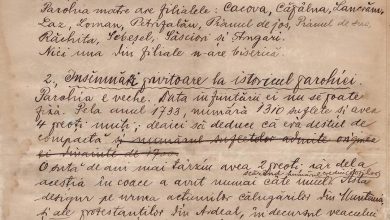 Parohia matre are filialele: Cacova, Căpâlna, Lancrăm,
Laz, Loman, Petrifalău, Pianul de jos, Pianul de sus,
Răchita, Sebeșel, Săsciori și Șugag.
Nici una din filiale n-are biserică.
2, Însimnări privitoare la istoricul parohiei.
Parohia e veche. Data înființării ei nu se poate
fixa. Pela anul 1733, număra 1310 suflete și avea
4 preoți uniți; deaici să deduce că era destul de
compactă și numărul sufletelor
O sută de ani mai târziu avea 2 preoți, iar dela
aceștia în coace a avut numai câte unul. Asta
desigur pe urma acțiunilor călugărilor din Muntenia
și ale protestanților din Ardeal, în decursul veacului